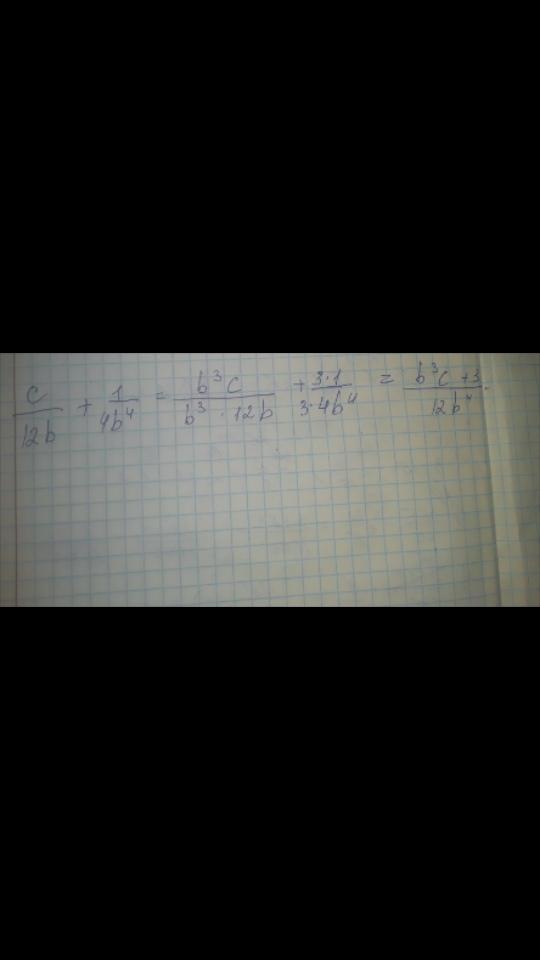 c/12b + 1/4b⁴ = b³c/b³ · 12b + 3·1/3·4b⁴ = b³c+3/12b⁴.